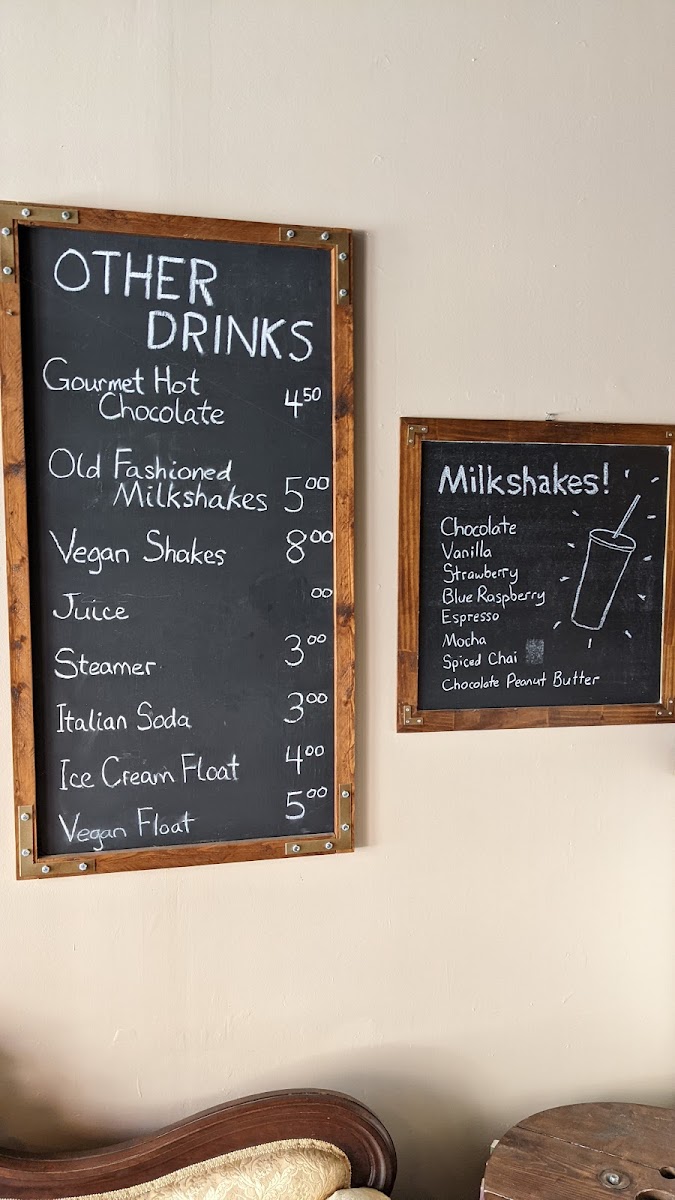 OTHER
DRINKS
Gourmet Hot
Chocolate 4⁵⁰
Old Fashioned
Milkshakes 5⁰⁰
Vegan Shakes 8⁰⁰
Juice ⁰⁰
Steamer 3⁰⁰
Italian Soda 3⁰⁰
Ice Cream Float 4⁰⁰
Vegan Float 5⁰⁰
Milkshakes!
Chocolate
Vanilla
Strawberry
Blue Raspberry
Espresso
Mocha
Spiced Chai
Chocolate Peanut Butter